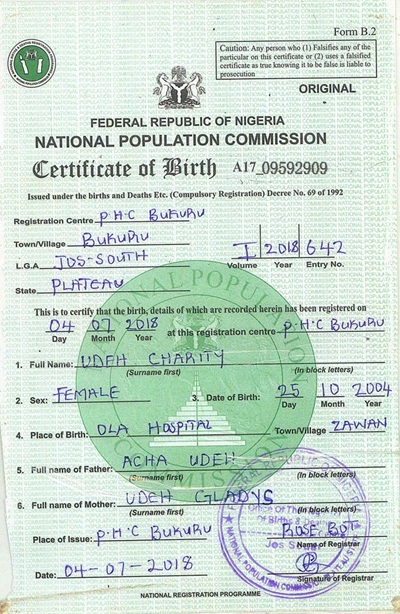 Form B.2
Caution: Any person who (1) Falsifies any of the
particular on this certificate or (2) uses a falsified
certificate as true knowing it to be false is liable to
prosecution
ORIGINAL
FEDERAL REPUBLIC OF NIGERIA
NATIONAL POPULATION COMMISSION
Certificate of Birth A17 09592909
Issued under the births and Deaths Etc. (Compulsory Registration) Decree No. 69 of 1992
Registration Centre P.H.C BUKURU
Town/Village BUKURU
L.G.A JOS-SOUTH
I 2018 642
Volume Year Entry No.
State PLATEAU
This is to certify that the birth, details of which are recorded herein has been registered on
04 07 2018 at this registration centre P.H.C BUKURU
Day Month Year
1. Full Name: UDEH CHARITY
(Surname first) (In block letters)
2. Sex: FEMALE 3. Date of Birth: 25 10 2004
Day Month Year
4. Place of Birth: OLA HOSPITAL Town/Village ZAWAN
5. Full name of Father: ACHA UDEH
(Surname first) (In block letters)
6. Full name of Mother: UDEH GLADYS
(Surname first) (In block letters)
Place of Issue: P.H.C BUKURU ROSE BOT
Name of Registrar
Date: 04-07-2018
Signature of Registrar
NATIONAL REGISTRATION PROGRAMME
NATIONAL POPULATION COMMISSION